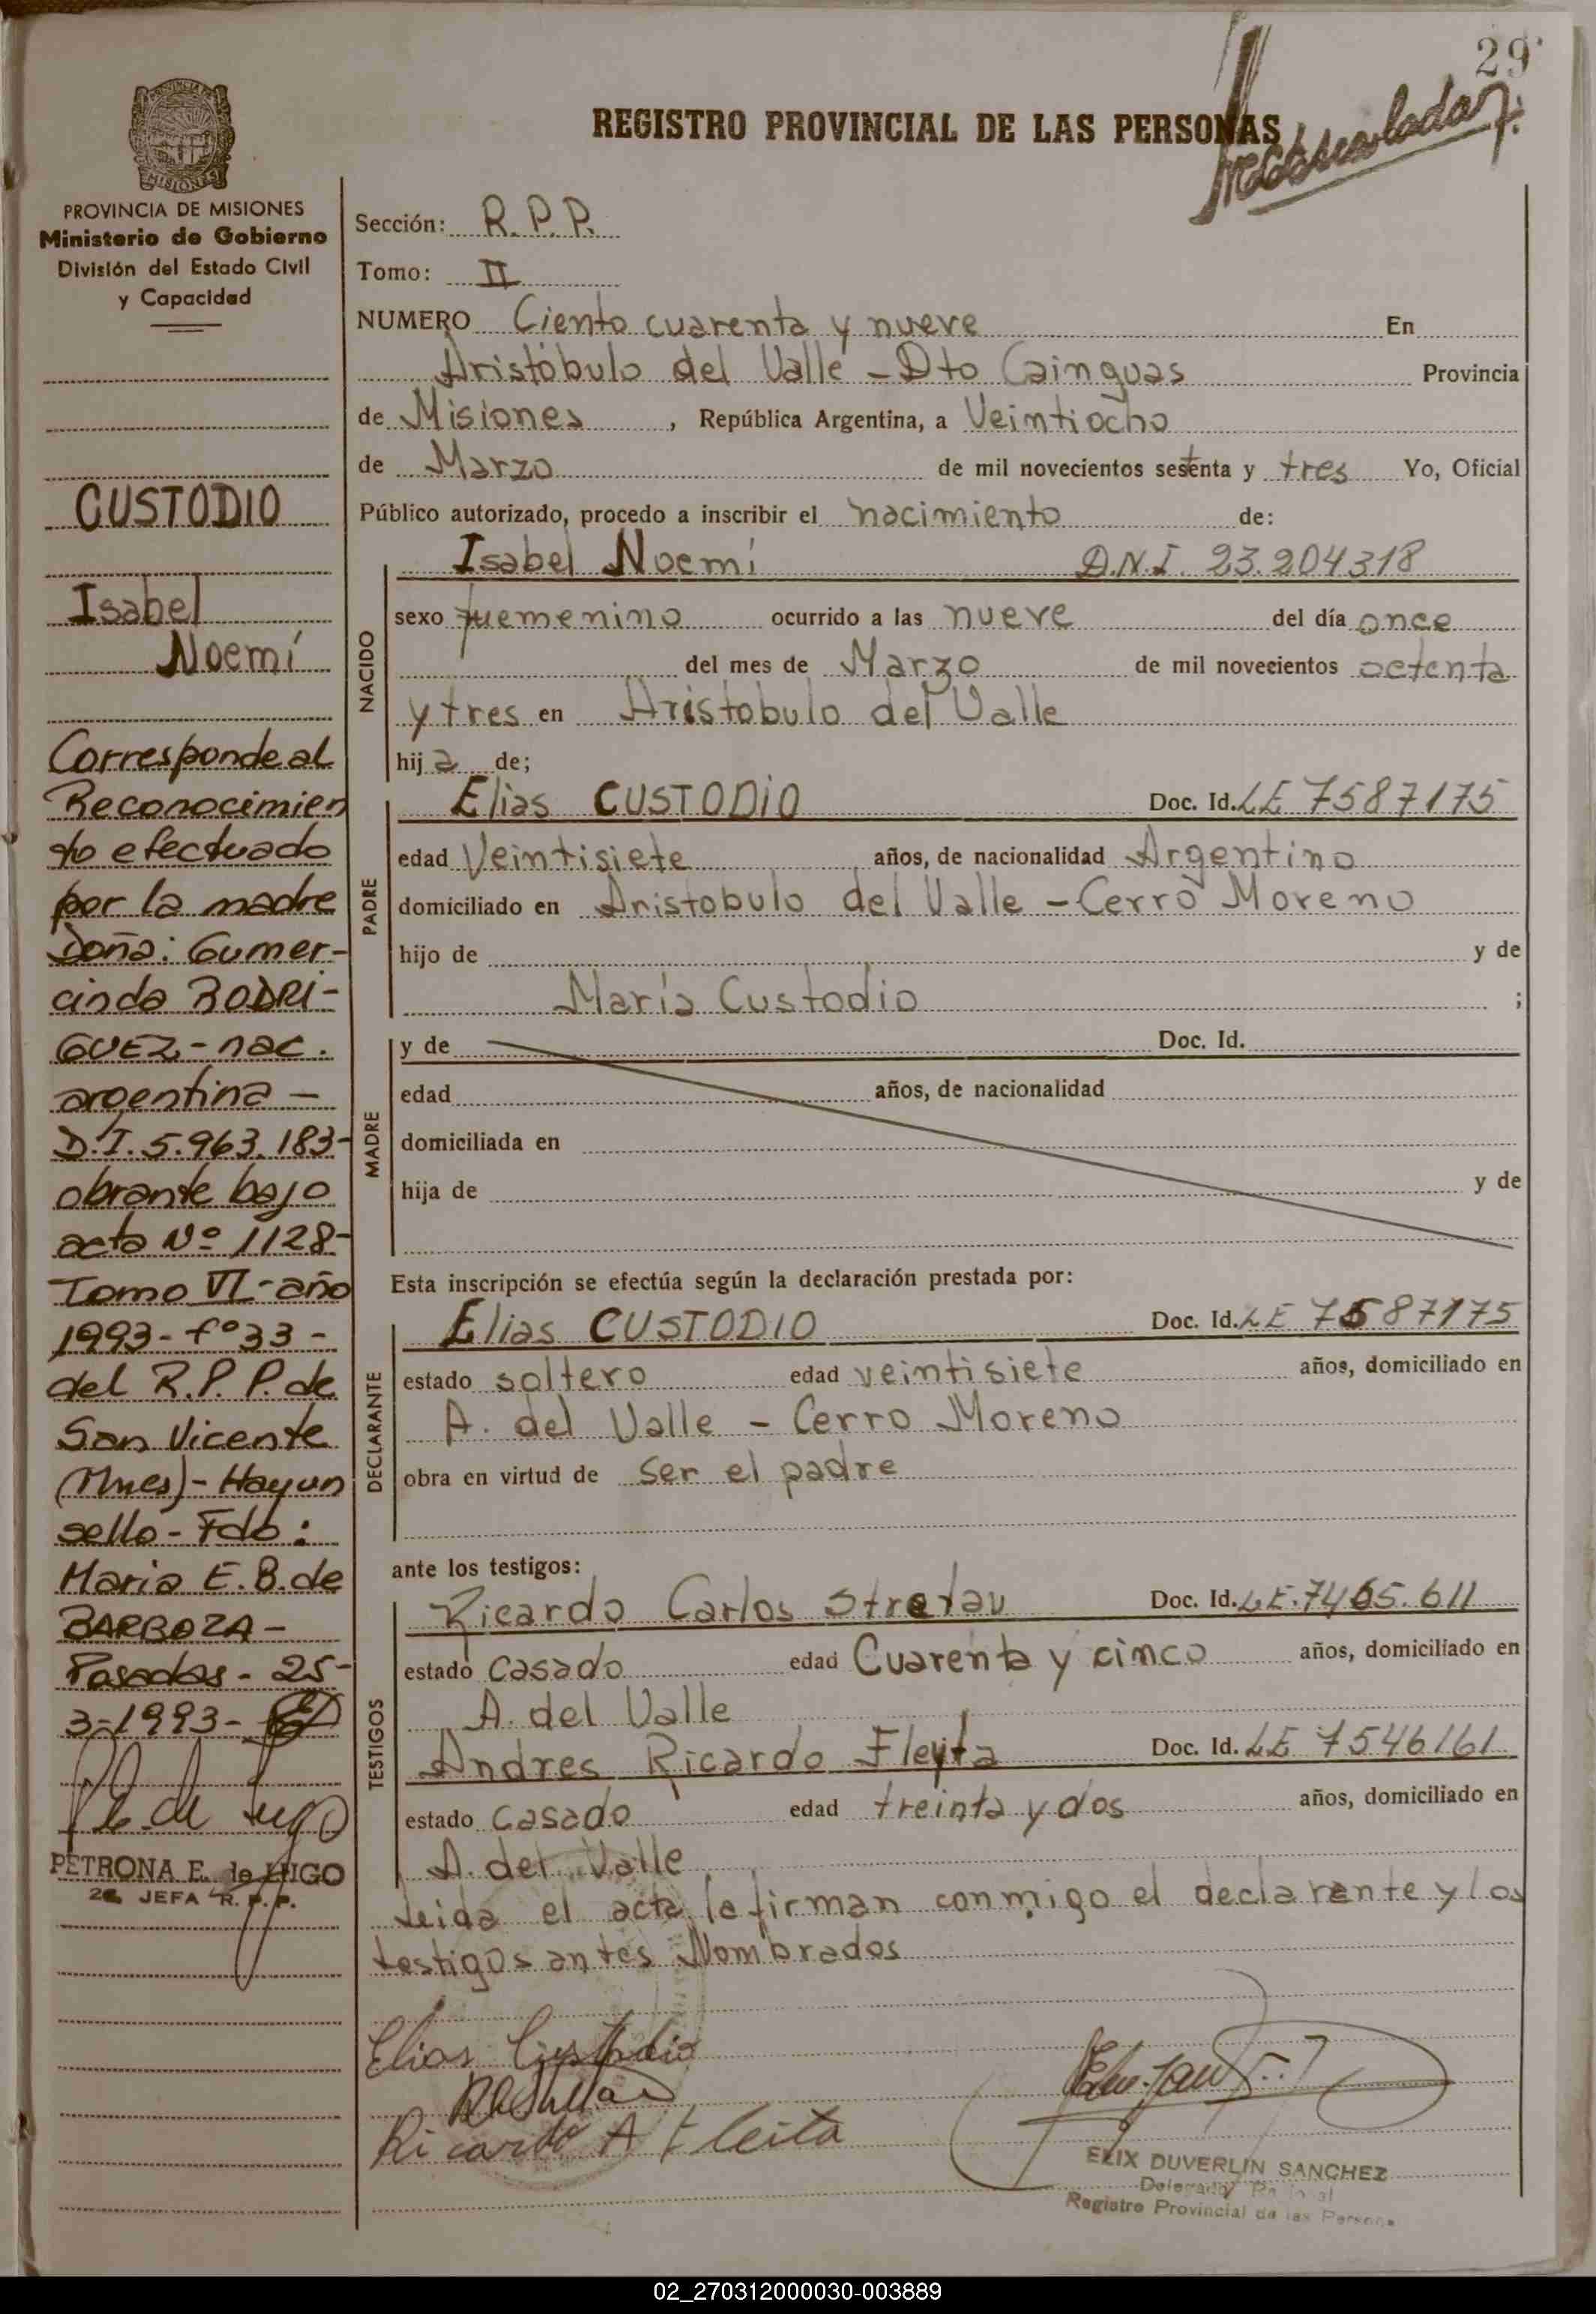 29
REGISTRO PROVINCIAL DE LAS PERSONAS
PROVINCIA DE MISIONES
Ministerio de Gobierno
División del Estado Civil
y Capacidad
CUSTODIO
Isabel
Noemí
Corresponde al
Reconocimien
to efectuado
por la madre
Doña: Gumer-
cinda RODRI-
GUEZ - nac.
argentina -
D.I. 5.963.183-
obrante bajo
acta Nº 1128-
Tomo VI - año
1993 - fº 33 -
del R.P.P. de
San Vicente
(Mnes) - Hay un
sello - Fdo:
Maria E. B. de
BARBOZA -
Posadas - 25-
3-1993-
PETRONA E. de LUGO
JEFA R. P. P.
Sección: R.P.P.
Tomo: II
NUMERO Ciento cuarenta y nueve En
Aristóbulo del Valle - Dto Cainguas Provincia
de Misiones, República Argentina, a Veintiocho
de Marzo de mil novecientos setenta y tres Yo, Oficial
Público autorizado, procedo a inscribir el nacimiento de:
NACIDO
Isabel Noemí D.N.I. 23.204318
sexo fuemenino ocurrido a las nueve del día once
del mes de Marzo de mil novecientos octenta
y tres en Aristobulo del Valle
hija de;
PADRE
Elias CUSTODIO Doc. Id. LE 7587175
edad Veintisiete años, de nacionalidad Argentino
domiciliado en Aristobulo del Valle - Cerro Moreno
hijo de y de
María Custodio ;
MADRE
y de Doc. Id.
edad años, de nacionalidad
domiciliada en
hija de y de
Esta inscripción se efectúa según la declaración prestada por:
DECLARANTE
Elias CUSTODIO Doc. Id. LE 7587175
estado soltero edad veintisiete años, domiciliado en
A. del Valle - Cerro Moreno
obra en virtud de ser el padre
ante los testigos:
TESTIGOS
Ricardo Carlos Doc. Id. LE. 7465.611
estado casado edad Cuarenta y cinco años, domiciliado en
A. del Valle
Andres Ricardo Fleyta Doc. Id. LE 7546161
estado casado edad treinta y dos años, domiciliado en
A. del Valle
Leida el acta la firman conmigo el declarante y los
testigos antes Nombrados
Elias Custodio
Ricardo A Fleita
ELIX DUVERLIN SANCHEZ
Registro Provincial de las Personas
02_270312000030-003889